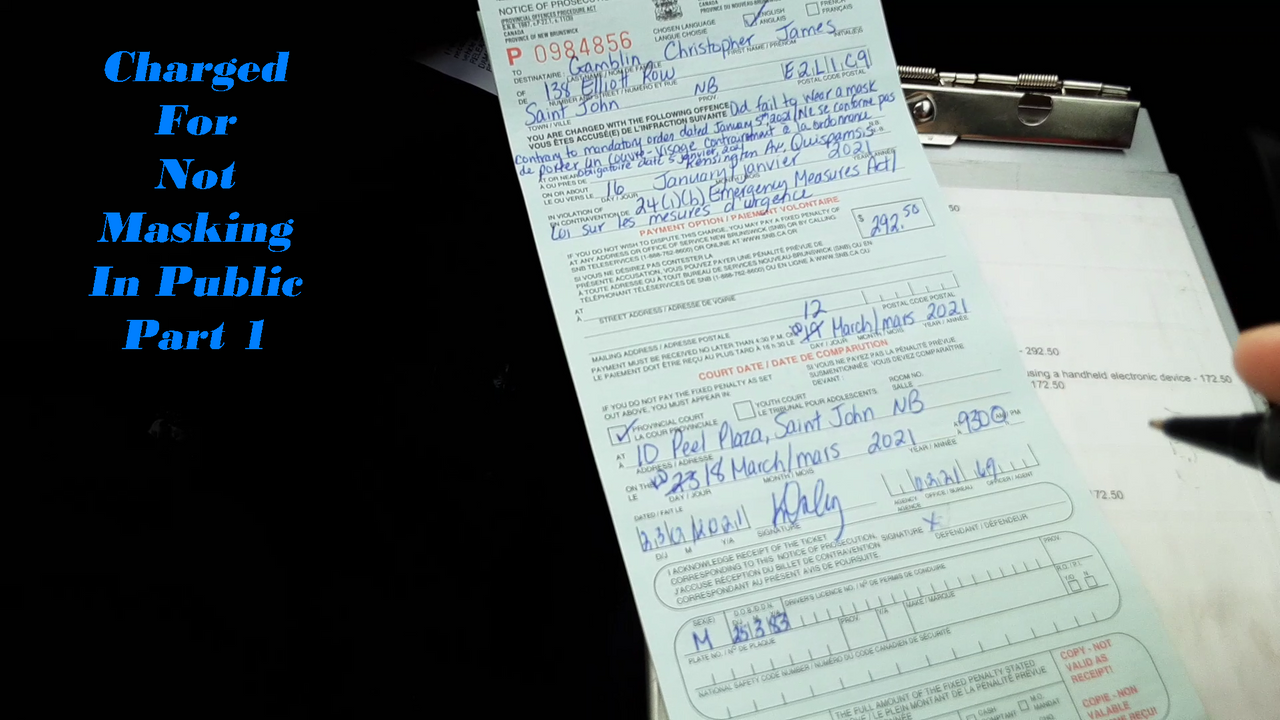 Charged
For
Not
Masking
In Public
Part 1
NOTICE OF PROSECU
PROVINCIAL OFFENCES PROCEDURE ACT
CANADA
PROVINCE OF NEW BRUNSWICK
CANADA
PROVINCE DU NOUVEAU-BRUNSWICK
CHOSEN LANGUAGE
LANGUE CHOISIE
ENGLISH
ANGLAIS
FRENCH
FRANÇAIS
P 0984856
TO
DESTINATAIRE:
Gamblin Christopher James
LAST NAME / NOM DE FAMILLE FIRST NAME / PRÉNOM INITIALES
OF
DE
138 Elliot Row
E2L1C9
NUMBER AND STREET / NUMÉRO ET RUE
POSTAL CODE POSTAL
Saint John NB
TOWN / VILLE PROV.
YOU ARE CHARGED WITH THE FOLLOWING OFFENCE
VOUS ÊTES ACCUSÉ(E) DE L'INFRACTION SUIVANTE
Did fail to wear a mask
contrary to mandatory order dated January 5th, 2021/Ne se conforme pas
de porter un couvre-visage contrairement à la ordonnance
obligatoire daté 5 janvier, 2021
AT OR NEAR
À OU PRÈS DE
Kensington Av. Quispamsis
ON OR ABOUT
LE OU VERS LE
16 January/janvier 2021
DAY / JOUR MONTH / MOIS YEAR / ANNÉE
IN VIOLATION OF
EN CONTRAVENTION DE
24(1)(b) Emergency Measures Act/
Loi sur les mesures d'urgence
PAYMENT OPTION / PAIEMENT VOLONTAIRE
IF YOU DO NOT WISH TO DISPUTE THIS CHARGE, YOU MAY PAY A FIXED PENALTY OF
AT ANY ADDRESS OR OFFICE OF SERVICE NEW BRUNSWICK (SNB) OR BY CALLING
SNB TELESERVICES (1-888-762-8600) OR ONLINE AT WWW.SNB.CA OR
$ 292.50
SI VOUS NE DÉSIREZ PAS CONTESTER LA
PRÉSENTE ACCUSATION, VOUS POUVEZ PAYER UNE PÉNALITÉ PRÉVUE DE
À TOUTE ADRESSE OU À TOUT BUREAU DE SERVICES NOUVEAU-BRUNSWICK (SNB) OU EN
TÉLÉPHONANT TÉLÉSERVICES DE SNB (1-888-762-8600) OU EN LIGNE À WWW.SNB.CA OU
AT
À
STREET ADDRESS / ADRESSE DE VOIRIE
POSTAL CODE POSTAL
MAILING ADDRESS / ADRESSE POSTALE
12
PAYMENT MUST BE RECEIVED NO LATER THAN 4:30 P.M. ON
LE PAIEMENT DOIT ÊTRE REÇU AU PLUS TARD À 16 h 30 LE
March/mars 2021
DAY / JOUR MONTH / MOIS YEAR / ANNÉE
COURT DATE / DATE DE COMPARUTION
IF YOU DO NOT PAY THE FIXED PENALTY AS SET
OUT ABOVE, YOU MUST APPEAR IN:
SI VOUS NE PAYEZ PAS LA PÉNALITÉ PRÉVUE
SUSMENTIONNÉE VOUS DEVEZ COMPARAÎTRE
DEVANT :
PROVINCIAL COURT
LA COUR PROVINCIALE
YOUTH COURT
LE TRIBUNAL POUR ADOLESCENTS
ROOM NO.
SALLE
AT
À
10 Peel Plaza, Saint John NB
ADDRESS / ADRESSE
ON THE
LE
23 18 March/mars 2021
DAY / JOUR MONTH / MOIS YEAR / ANNÉE
930 AM PM
DATED / FAIT LE
23 02 2021
DJ M Y/A
SIGNATURE
0221 69
AGENCY
AGENCE
OFFICE / BUREAU
OFFICER / AGENT
I ACKNOWLEDGE RECEIPT OF THE TICKET
CORRESPONDING TO THIS NOTICE OF PROSECUTION.
J'ACCUSE RÉCEPTION DU BILLET DE CONTRAVENTION
CORRESPONDANT AU PRÉSENT AVIS DE POURSUITE.
SIGNATURE X
DEFENDANT / DÉFENDEUR
SEX(E)
D.O.B./D.D.N.
DRIVER'S LICENCE NO. / Nº DE PERMIS DE CONDUIRE
PROV.
M 25 3 83
PLATE NO. / Nº DE PLAQUE
PROV.
Y/A
MAKE / MARQUE
NATIONAL SAFETY CODE NUMBER / NUMÉRO DU CODE CANADIEN DE SÉCURITÉ
THE FULL AMOUNT OF THE FIXED PENALTY STATED
LE PLEIN MONTANT DE LA PÉNALITÉ PRÉVUE
CASH
M.O.
MANDAT
COPY - NOT
VALID AS
RECEIPT!
COPIE - NON
VALABLE
REÇU!
50
- 292.50
using a handheld electronic device - 172.50
172.50
72.50